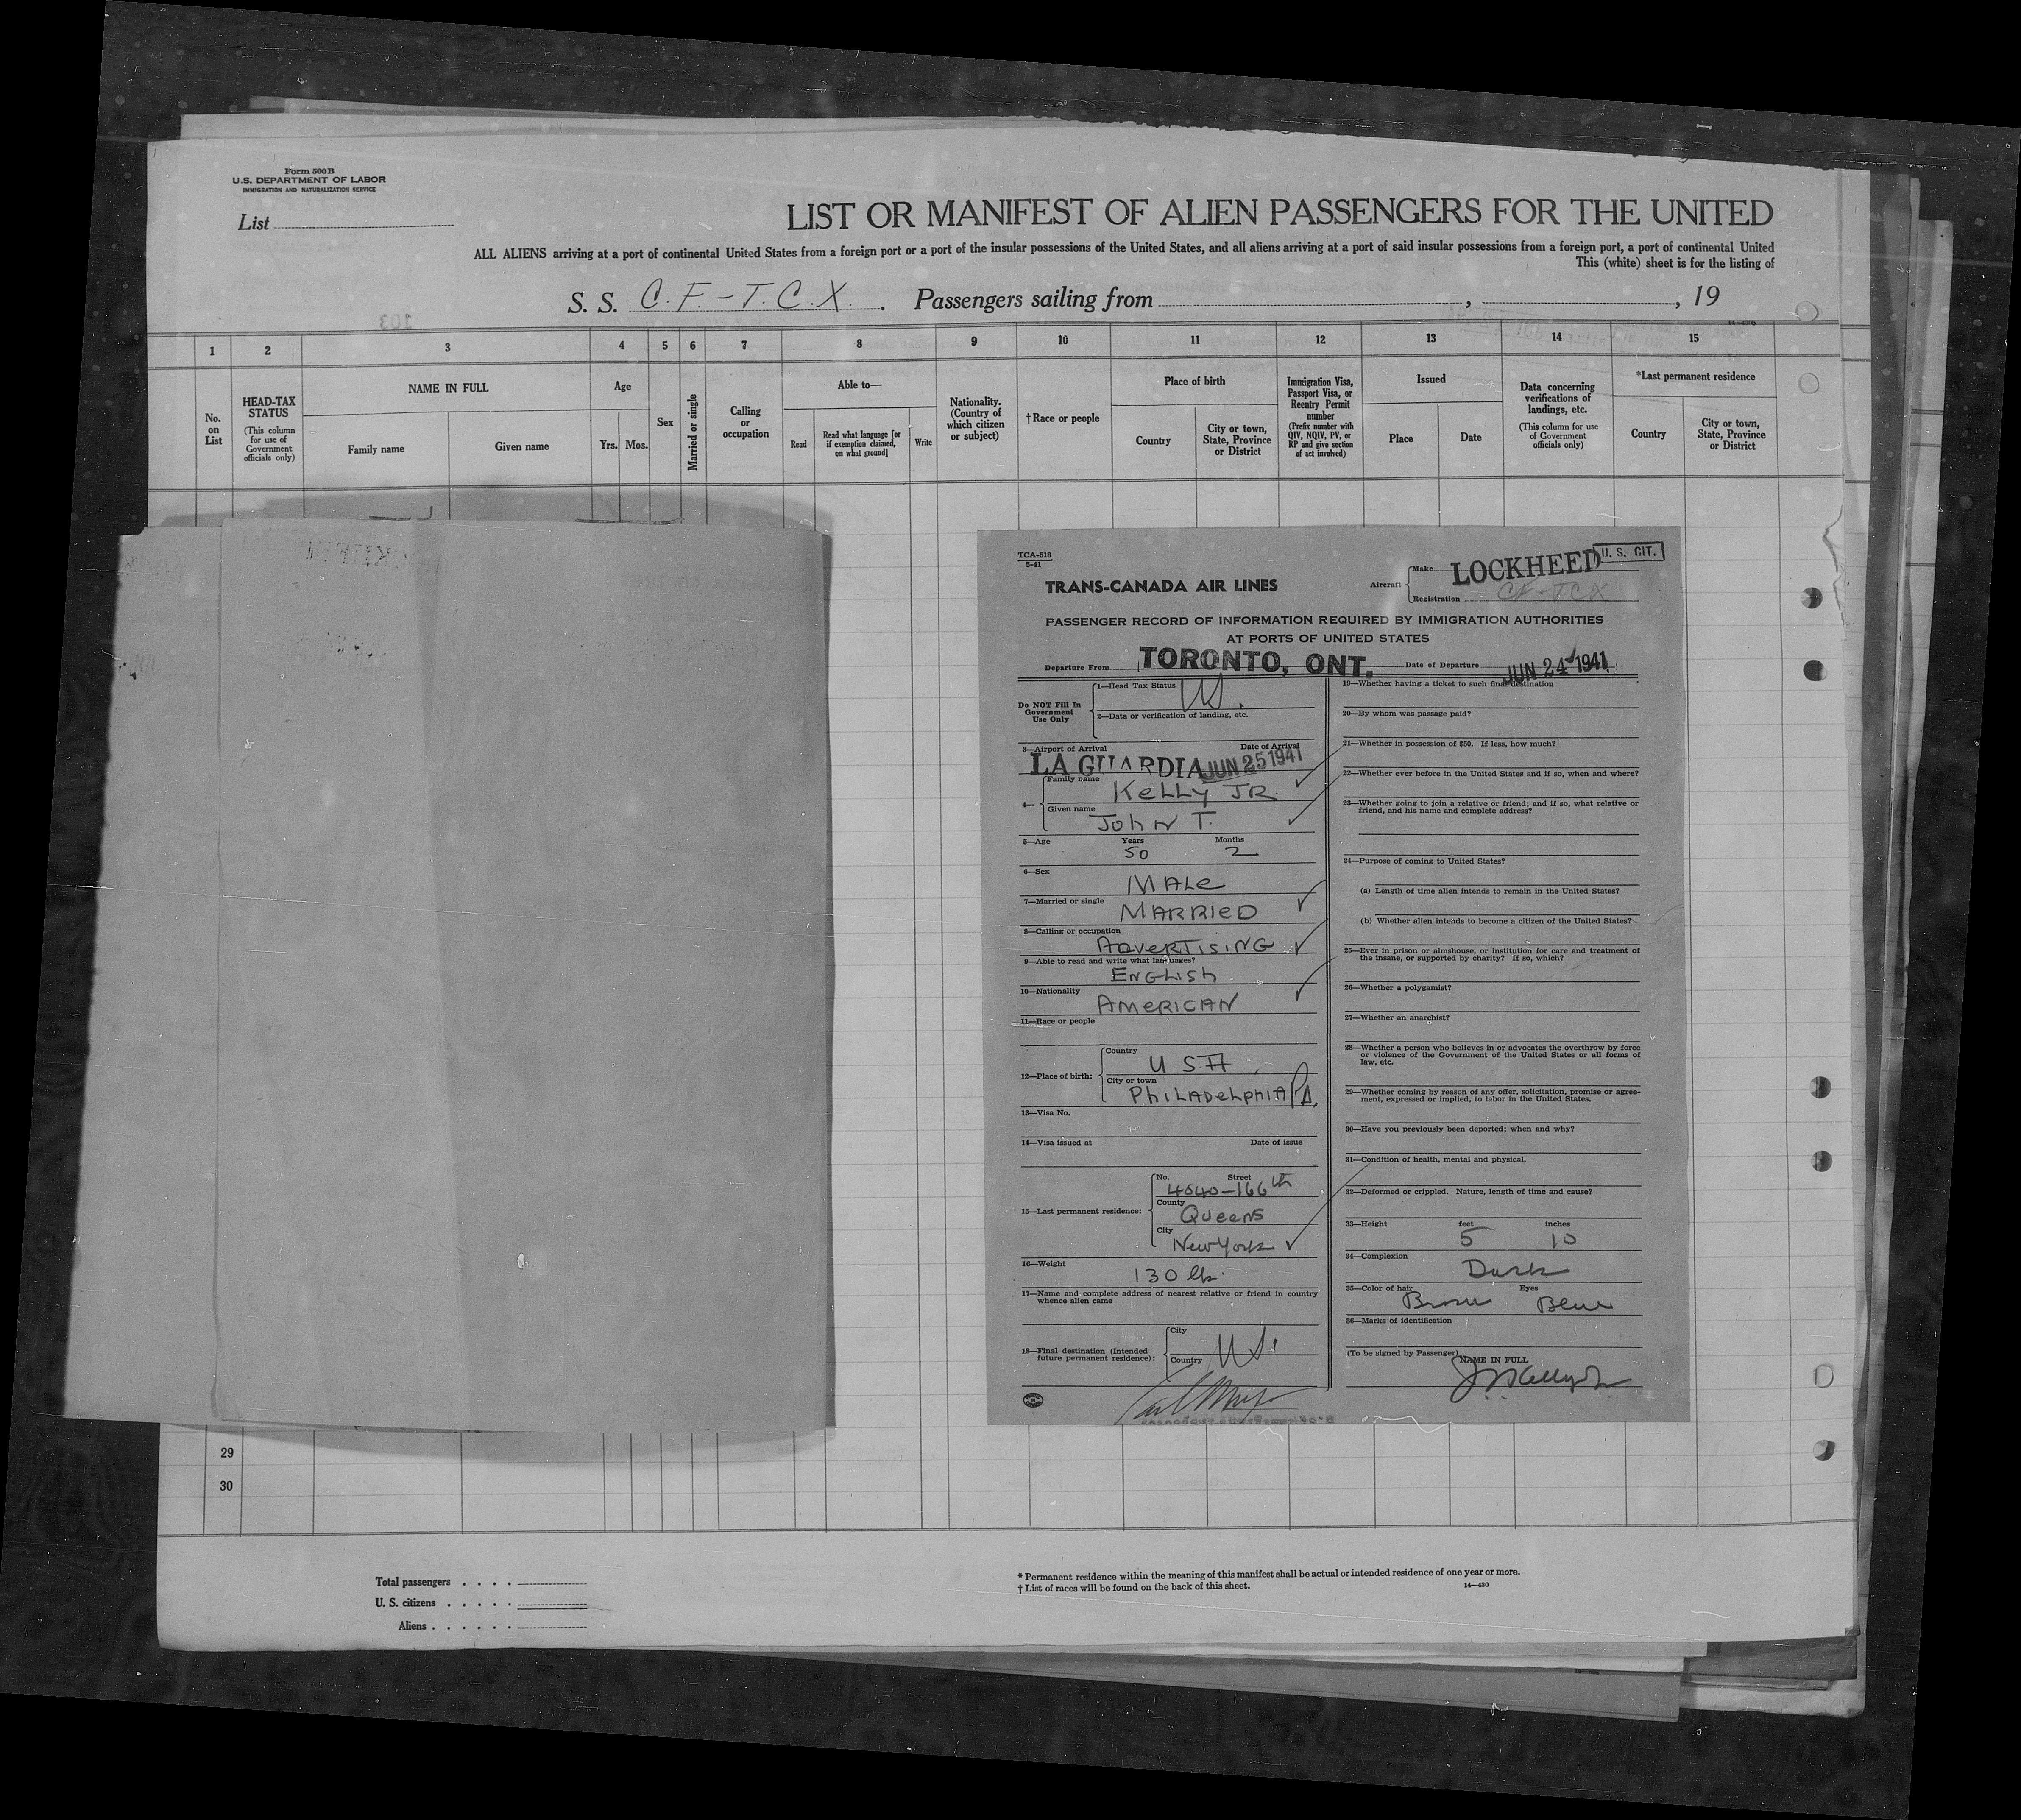 Form 500 B
U.S. DEPARTMENT OF LABOR
IMMIGRATION AND NATURALIZATION SERVICE
List
LIST OR MANIFEST OF ALIEN PASSENGERS FOR THE UNITED
ALL ALIENS arriving at a port of continental United States from a foreign port or a port of the insular possessions of the United States, and all aliens arriving at a port of said insular possessions from a foreign port, a port of continental United
This (white) sheet is for the listing of
S. S. C.F.-T.C.X. Passengers sailing from , , 19
103
1 2 3 4 5 6 7 8 9 10 11 12 13 14 15
No. on List
HEAD-TAX STATUS
(This column for use of Government officials only)
NAME IN FULL
Family name
Given name
Age
Yrs. Mos.
Sex
Married or single
Calling or occupation
Able to—
Read
Read what language [or if exemption claimed, on what ground]
Write
Nationality. (Country of which citizen or subject)
†Race or people
Place of birth
Country
City or town, State, Province or District
Immigration Visa, Passport Visa, or Reentry Permit number
(Prefix number with QIV, NQIV, PV, or RP and give section of act involved)
Issued
Place
Date
Data concerning verifications of landings, etc.
(This column for use of Government officials only)
*Last permanent residence
Country
City or town, State, Province or District
TCA-518
5-41
TRANS-CANADA AIR LINES
Aircraft
Make LOCKHEED
U. S. CIT.
Registration CF-TCX
PASSENGER RECORD OF INFORMATION REQUIRED BY IMMIGRATION AUTHORITIES
AT PORTS OF UNITED STATES
Departure From TORONTO, ONT. Date of Departure JUN 24 1941
Do NOT Fill In Government Use Only
1—Head Tax Status
2—Data or verification of landing, etc.
3—Airport of Arrival Date of Arrival
LA GUARDIA JUN 25 1941
4— Family name
Kelly JR
Given name
John T.
5—Age Years Months
50 2
6—Sex
Male
7—Married or single
Married
8—Calling or occupation
Advertising
9—Able to read and write what languages?
English
10—Nationality
American
11—Race or people
12—Place of birth:
Country
U.S.A
City or town
Philadelphia Pa.
13—Visa No.
14—Visa issued at Date of issue
15—Last permanent residence:
No. Street
4040-166th
County
Queens
City
New York
16—Weight
130 lb.
17—Name and complete address of nearest relative or friend in country whence alien came
18—Final destination (Intended future permanent residence):
City
Country
US.
19—Whether having a ticket to such final destination
20—By whom was passage paid?
21—Whether in possession of $50. If less, how much?
22—Whether ever before in the United States and if so, when and where?
23—Whether going to join a relative or friend; and if so, what relative or
friend, and his name and complete address?
24—Purpose of coming to United States?
(a) Length of time alien intends to remain in the United States?
(b) Whether alien intends to become a citizen of the United States?
25—Ever in prison or almshouse, or institution for care and treatment of
the insane, or supported by charity? If so, which?
26—Whether a polygamist?
27—Whether an anarchist?
28—Whether a person who believes in or advocates the overthrow by force
or violence of the Government of the United States or all forms of
law, etc.
29—Whether coming by reason of any offer, solicitation, promise or agree-
ment, expressed or implied, to labor in the United States.
30—Have you previously been deported; when and why?
31—Condition of health, mental and physical.
32—Deformed or crippled. Nature, length of time and cause?
33—Height feet inches
5 10
34—Complexion
Dark
35—Color of hair Eyes
Brown Blue
36—Marks of identification
(To be signed by Passenger)
NAME IN FULL
29
30
Total passengers
U. S. citizens
Aliens
* Permanent residence within the meaning of this manifest shall be actual or intended residence of one year or more.
† List of races will be found on the back of this sheet.
14—420